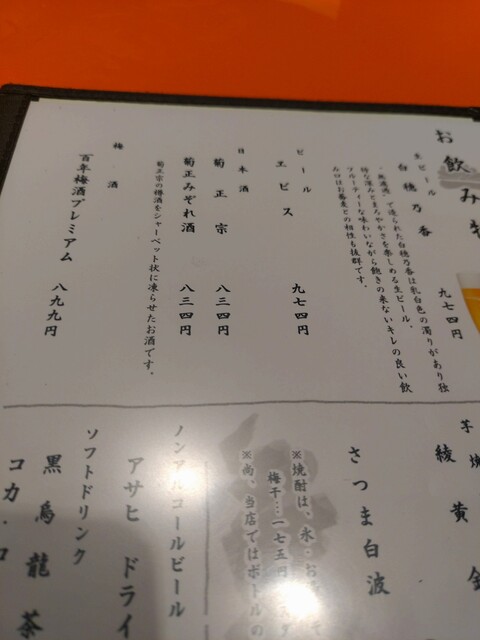 お飲み物
生ビール
白穂乃香 九七四円
"無濾過"で造られた白穂乃香は乳白色の濁りがあり独
特な凄みとまろやかさを楽しめる生ビール。
フルーティーな味わいながら飽きの来ないキレの良い飲
み口はお蕎麦との相性も抜群です。
ビール
ヱビス 九七四円
日本酒
菊正宗 八三四円
菊正みぞれ酒 八三四円
菊正宗の樽酒をシャーベット状に凍らせたお酒です。
梅酒
百年梅酒プレミアム 八九九円
芋焼
綾黄金
さつま白波
※焼酎は、氷・お
梅干…一七五円
※尚、当店ではボトルの
ノンアルコールビール
アサヒ ドライ
ソフトドリンク
黒烏龍茶
コカ・コ